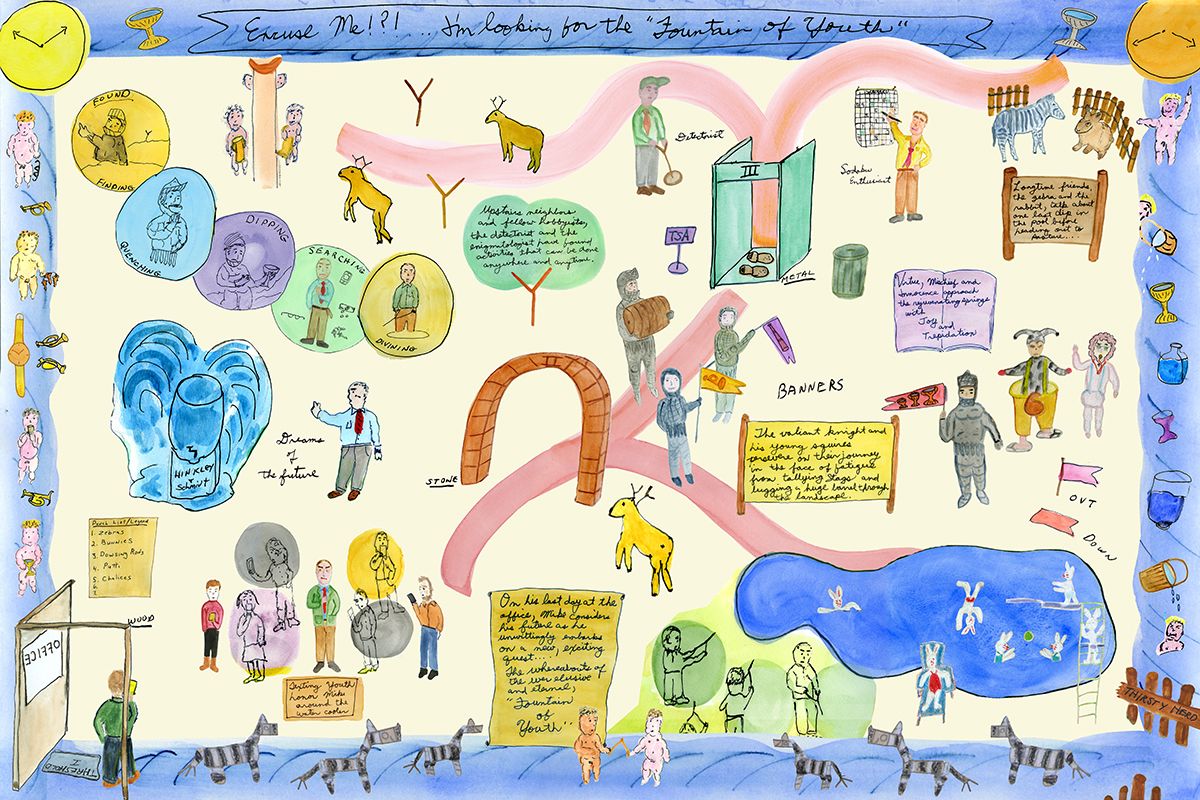 Excuse Me!?! ... I'm looking for the "Fountain of Youth"
FOUND
FINDING
QUENCHING
DIPPING
SEARCHING
DIVINING
Upstairs neighbors
and fellow hobbyists,
the detectorist and the
enigmatologist have found
activities that can be done
anywhere and anytime.
Detectorist
III
TSA
METAL
Sodaku
Enthusiast
Longtime friends,
the zebra and the
rabbit, talk about
one last dip in
the pool before
heading out to
pasture...
Virtue, Mischief and
Innocence approach
the rejuvenating springs
with
Joy
and
Trepidation
HINKLEY
+
Schmitt
Dreams
of
the future
II
STONE
BANNERS
The valiant knight and
his young squires
persevere on their journey
in the face of fatigue
from tallying stags and
lugging a huge barrel through
the landscape.
OUT
DOWN
List/Legend
1. Zebras
2. Bunnies
3. Dowsing Rods
4. Putti
5. Chalices
6.
7.
WOOD
OFFICE
I
THRESHOLD
Texting Youth
honor Mike
around the
water cooler
On his last day at the
office, Mike considers
his future as he
unwittingly embarks
on a new, exciting
quest....
The whereabouts of
the ever elusive
and eternal,
"Fountain
of
Youth"
THIRSTY HERD